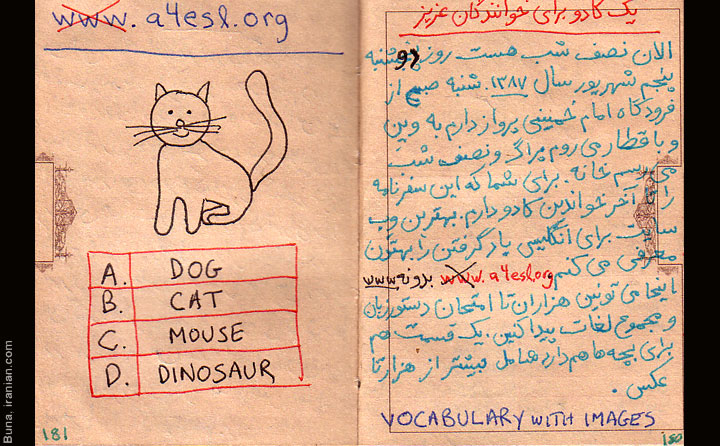 یک کادو برای خوانندگان عزیز
الان نصف شب هست روز دوشنبه
پنجم شهریور سال ۱۳۸۷. شنبه صبح از
فرودگاه امام خمینی پرواز دارم به وین
و با قطار می روم پراگ و نصف شب
می رسم خانه. برای شما که این سفرنامه
را تا آخر خواندین کادو دارم. بهترین وب
سایت برای انگلیسی یاد گرفتن را بهتون
معرفی می کنم www. a4esl.org بدونه www
اینجا می تونین هزاران تا امتحان دستور زبان
و مجموع لغات پیدا کنین. یک قسمت هم
برای بچه ها هم دارد شامل بیشتر از هزار تا
عکس.
VOCABULARY WITH IMAGES
180
www. a4esl.org
A. DOG
B. CAT
C. MOUSE
D. DINOSAUR
181
Buna, iranian.com